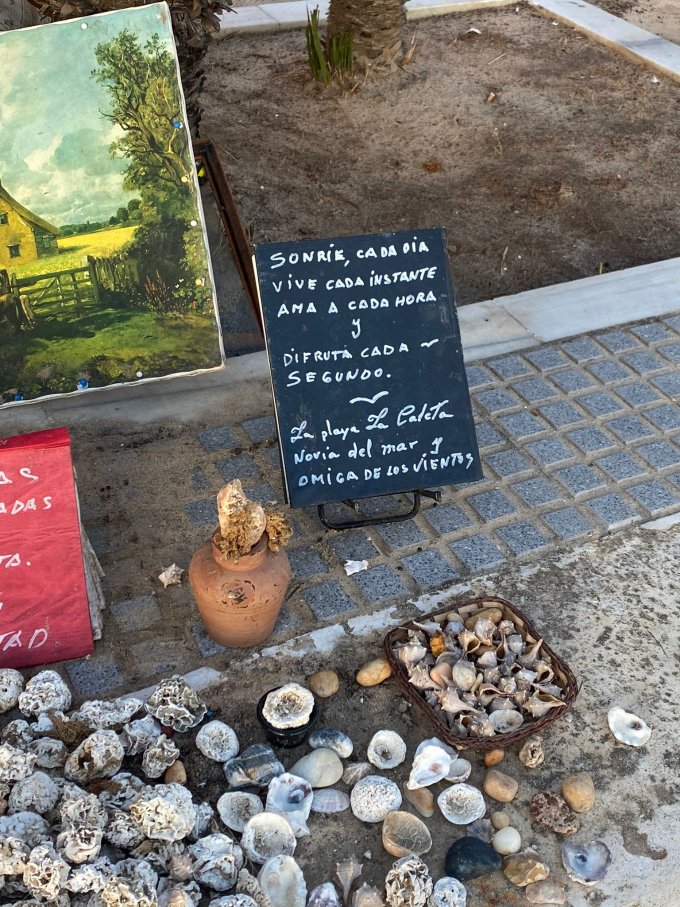 SONRIE, CADA DIA
VIVE CADA INSTANTE
AMA A CADA HORA
y
DIFRUTA CADA
SEGUNDO.
La playa La Caleta
Novia del mar y
OMIGA DE LOS VIENTOS
AS
ADAS
TA.
TAD